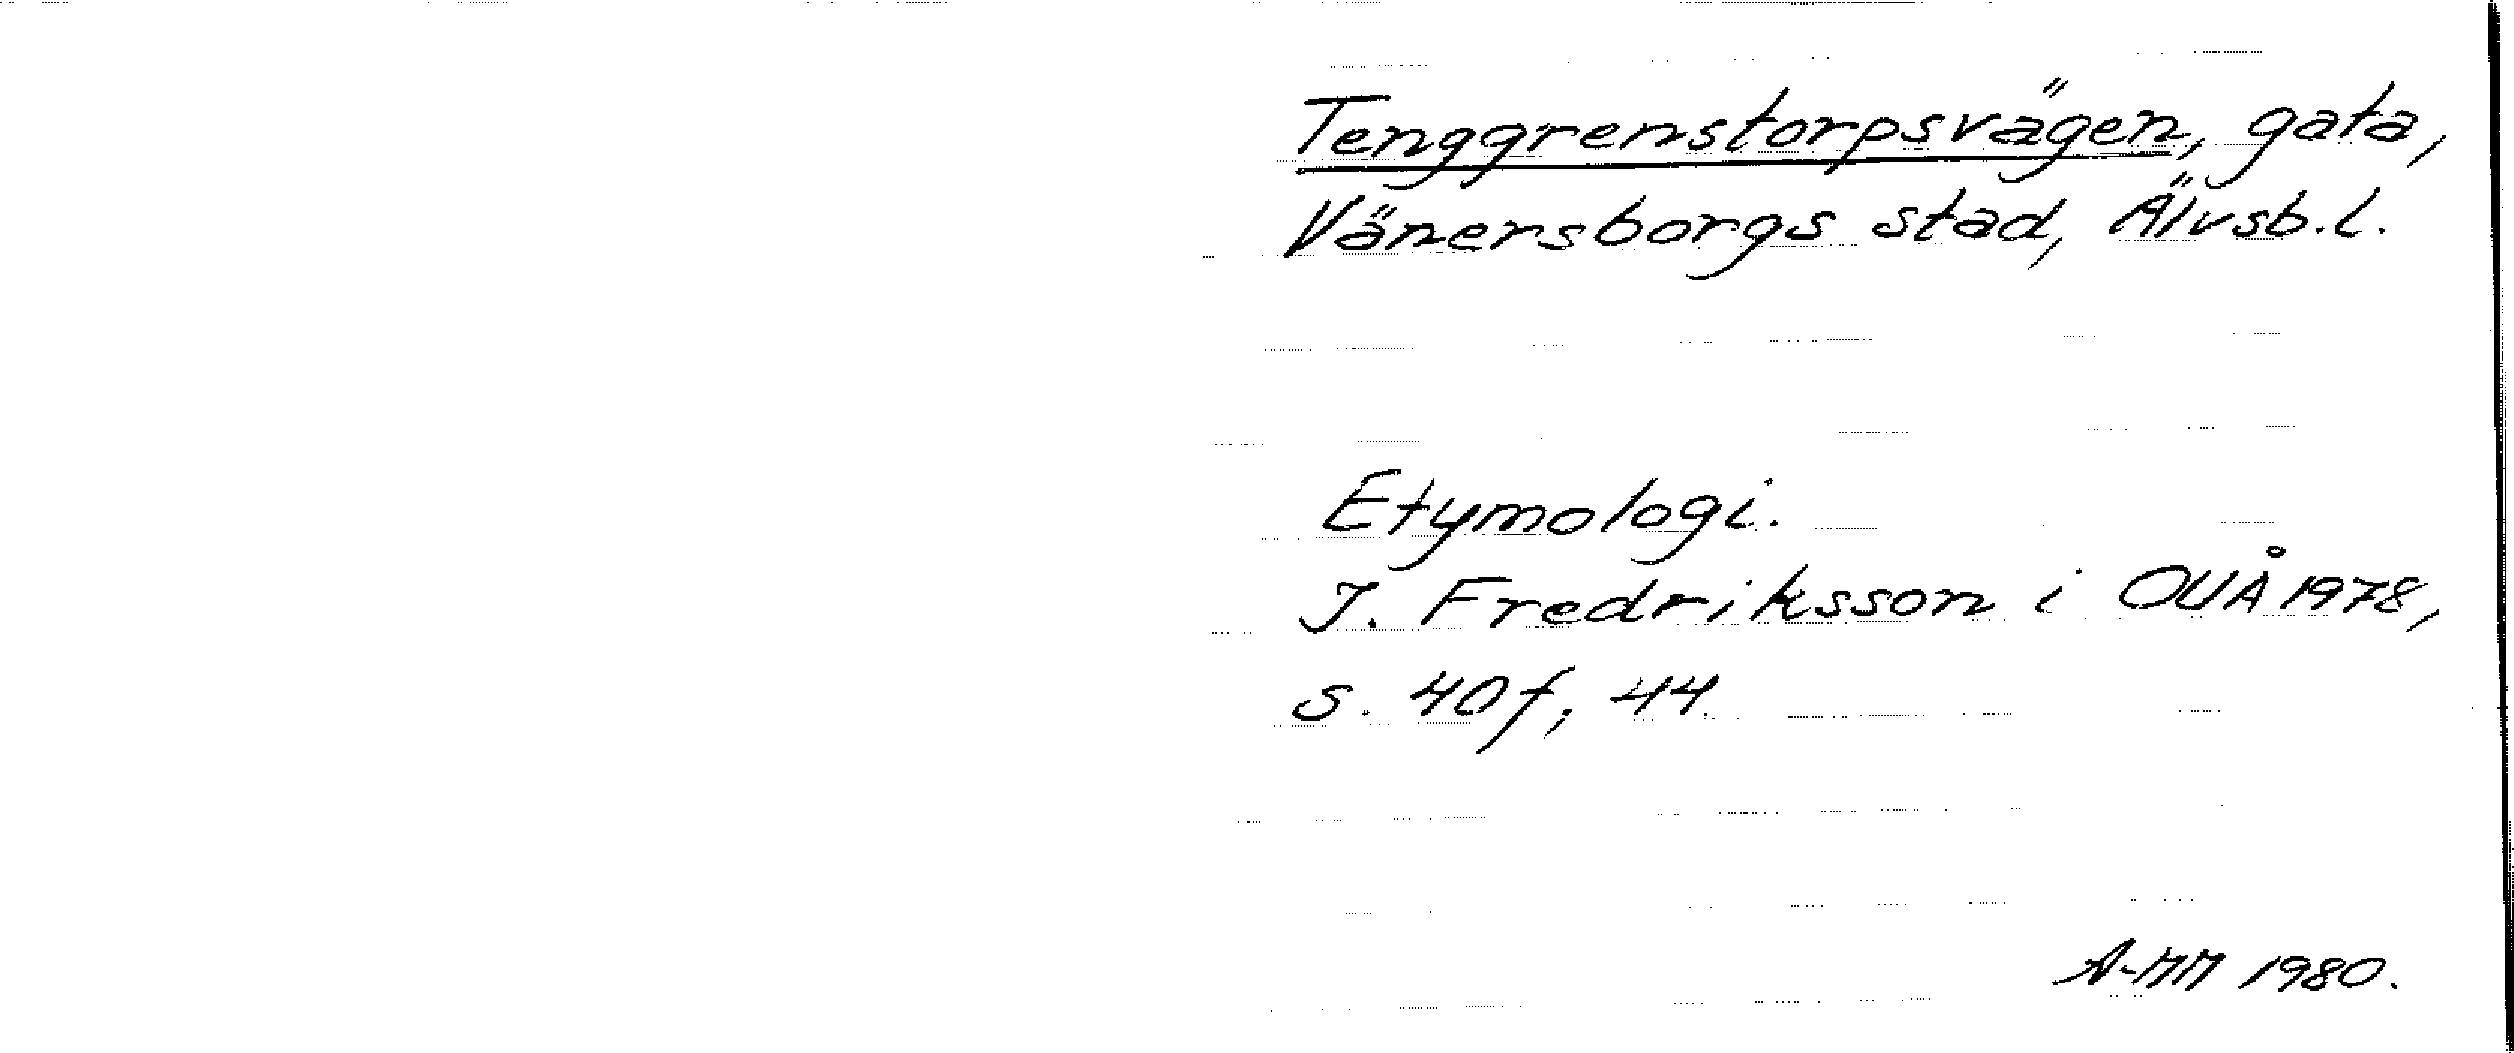 Tenggrenstorpsvägen, gata,
Vänersborgs stad, Älvsb.l.
Etymologi.
I. Fredriksson i OUÅ 1978,
s. 40f, 44.
A-MM 1980.